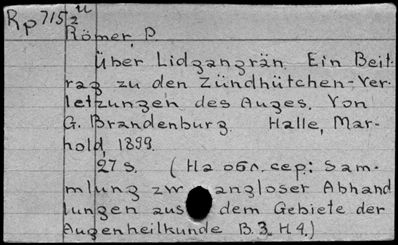 Rp 715/2 u
Römer, P.
Über Lidgangrän. Ein Beit-
rag zu den Zündhütchen-Ver-
letzungen des Auges. Von
G. Brandenburg. Halle, Mar-
hold, 1899.
27 s. (На обл. сер.: Sam-
mlung zw angloser Abhand
lungen aus dem Gebiete der
Augenheilkunde B. 3. H 4.)